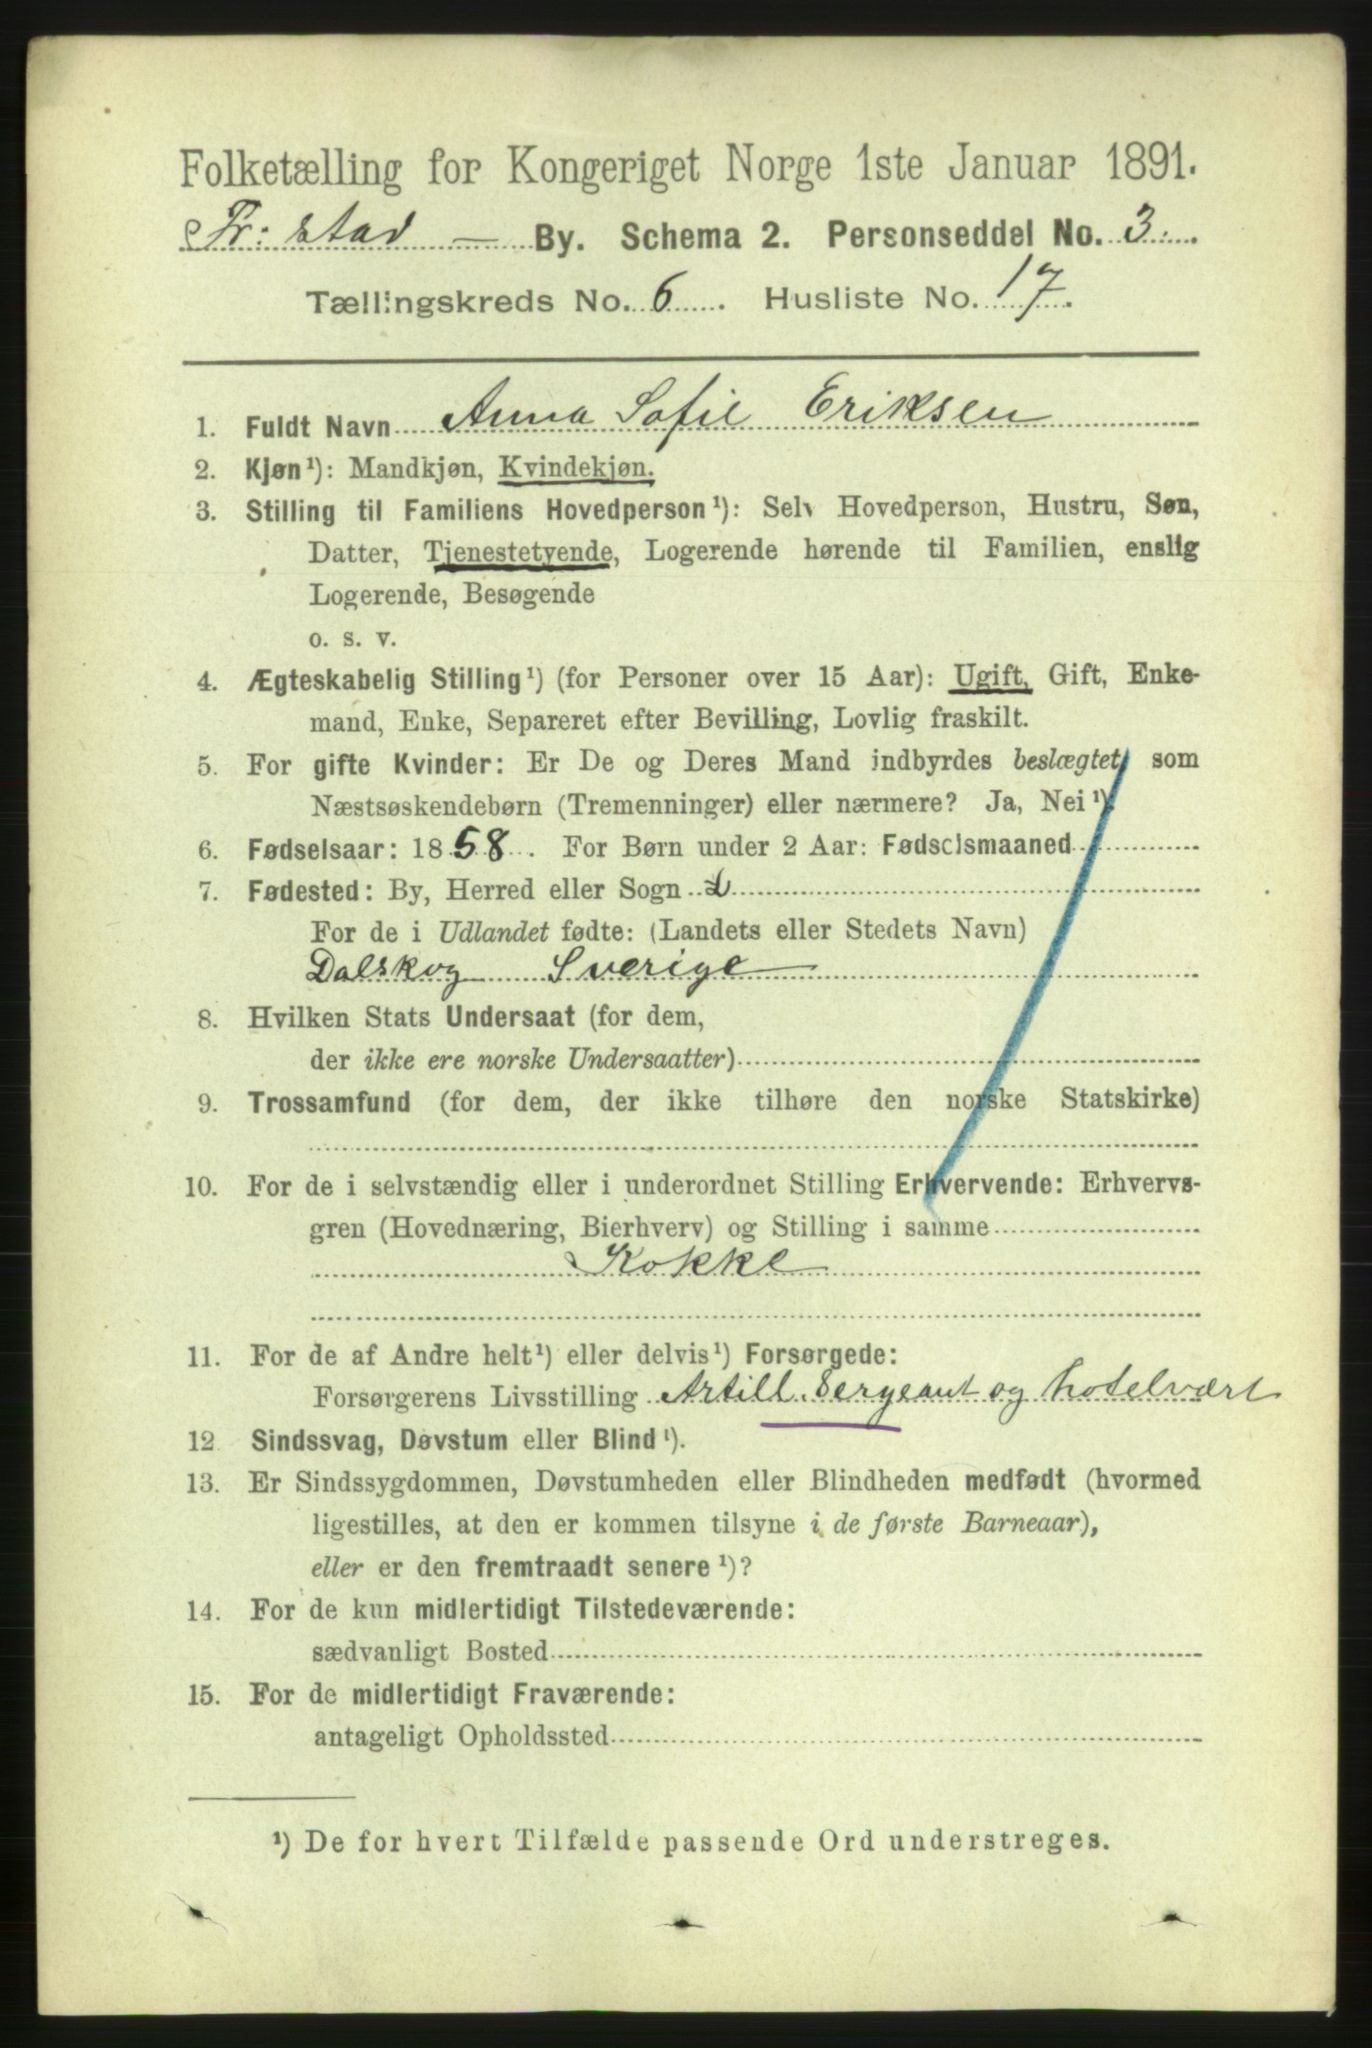 Folketælling for Kongeriget Norge 1ste Januar 1891.
Fr: stad — By. Schema 2. Personseddel No. 3.
Tællingskreds No. 6. Husliste No. 17.
1. Fuldt Navn Anna Sofie Eriksen
2. Kjøn¹): Mandkjøn, Kvindekjøn.
3. Stilling til Familiens Hovedperson¹): Selv Hovedperson, Hustru, Søn,
Datter, Tjenestetyende, Logerende hørende til Familien, enslig
Logerende, Besøgende
o. s. v.
4. Ægteskabelig Stilling¹) (for Personer over 15 Aar): Ugift, Gift, Enke-
mand, Enke, Separeret efter Bevilling, Lovlig fraskilt.
5. For gifte Kvinder: Er De og Deres Mand indbyrdes beslægtet, som
Næstsøskendebørn (Tremenninger) eller nærmere? Ja, Nei¹).
6. Fødselsaar: 1858. For Børn under 2 Aar: Fødselsmaaned
7. Fødested: By, Herred eller Sogn
For de i Udlandet fødte: (Landets eller Stedets Navn)
Dalskog Sverige
8. Hvilken Stats Undersaat (for dem,
der ikke ere norske Undersaatter)
9. Trossamfund (for dem, der ikke tilhøre den norske Statskirke)
10. For de i selvstændig eller i underordnet Stilling Erhvervende: Erhvervs-
gren (Hovednæring, Bierhverv) og Stilling i samme
Kokke
11. For de af Andre helt¹) eller delvis¹) Forsørgede:
Forsørgerens Livsstilling Artill. Sergeant og hotelvært
12 Sindssvag, Døvstum eller Blind¹).
13. Er Sindssygdommen, Døvstumheden eller Blindheden medfødt (hvormed
ligestilles, at den er kommen tilsyne i de første Barneaar),
eller er den fremtraadt senere¹)?
14. For de kun midlertidigt Tilstedeværende:
sædvanligt Bosted
15. For de midlertidigt Fraværende:
antageligt Opholdssted
¹) De for hvert Tilfælde passende Ord understreges.